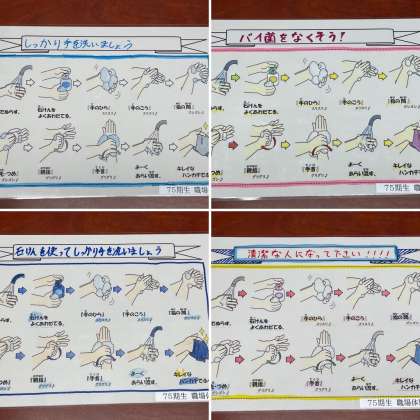 しっかり手を洗いましょう
てぬらす。
石けんを
よくあわだてる。
【手のひら】
【手のこう】
【指の間】
【親指】
【手首】
よーく
あらい流す。
キレイな
75期生 職場
バイ菌をなくそう！
てぬらす。
石けんを
よくあわだてる。
【手のひら】
【手のこう】
【指の間】
【親指】
【手首】
よーく
あらい流す。
キレイな
ハンカチで
75期生 職場
石けんを使ってしっかり手を洗いましょう
らす。
石けんを
よくあわだてる。
【手のひら】
【手のこう】
【指の間】
つめ】
【親指】
【手首】
よーく
あらい流す。
キレイな
ハンカチでふく
75期生 職場
清潔な人になって下さい!!!!
ぬらす。
石けんを
よくあわだてる。
【手のひら】
【手のこう】
【指の間】
つめ】
【親指】
【手首】
よーく
あらい流す。
キレイな
ハンカチ
75期生 職場体